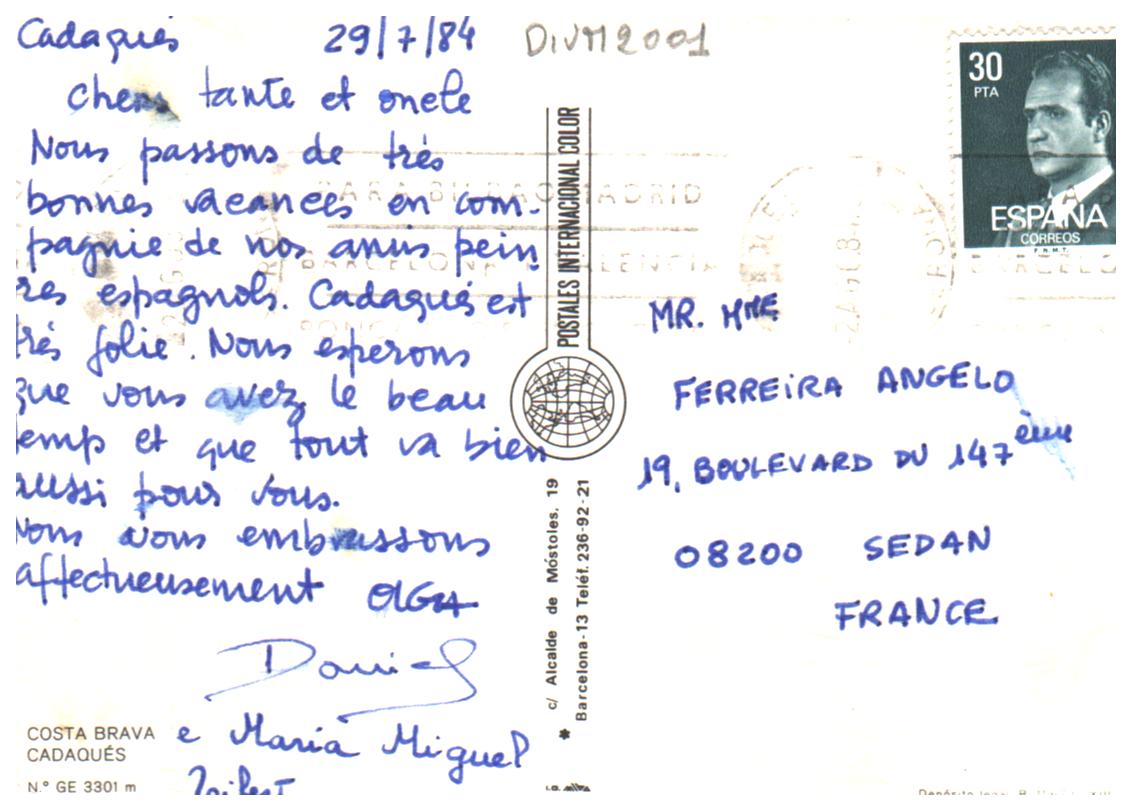 Cadaqués 29/7/84 DIVM2001
chers tante et oncle
Nous passons de très
bonnes vacances en com-
pagnie de nos amis pein
res espagnols. Cadaqués est
rés jolie. Nous esperons
que vous avez le beau
emp et que tout va bien
aussi pour vous.
Nous vous embrassons
affectueusement OLGA
Daniel
e Maria Miguel
COSTA BRAVA
CADAQUÉS
N.º GE 3301 m
POSTALES INTERNACIONAL COLOR
c/ Alcalde de Móstoles, 19
Barcelona-13 Teléf. 236-92-21
30
PTA
ESPAÑA
CORREOS
F.N.M.T.
PARA BILBAO MADRID
BARCELONA VALENCIA
MR. MME
FERREIRA ANGELO
19, BOULEVARD DU 147ème
08200 SEDAN
FRANCE